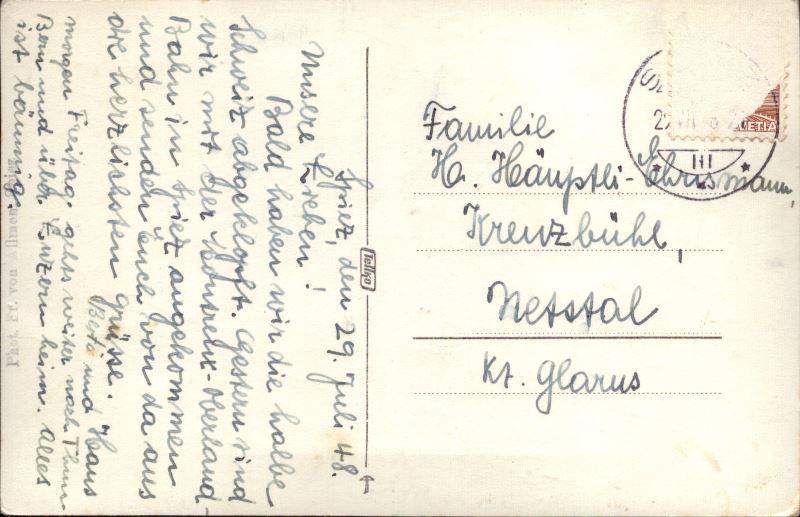 Spiez, den 29. Juli 48.
Unsere Lieben!
Bald haben wir die halbe
Schweiz abgeklopft. Gestern sind
wir mit der Montreux-Oberland-
Bahn in Spiez angekommen
und senden Euch von da aus
die herzlichsten Grüsse.
Berti und Hans
morgen Freitag gehts weiter nach Thun
Bern und übr. Luzern heim. Alles
ist bäumig.
Phot. Fr. von Allmen
Tellko
Familie
H. Häuptli-Ehrismann,
Kreuzbühl,
Netstal
Kt. Glarus
VETIA
III